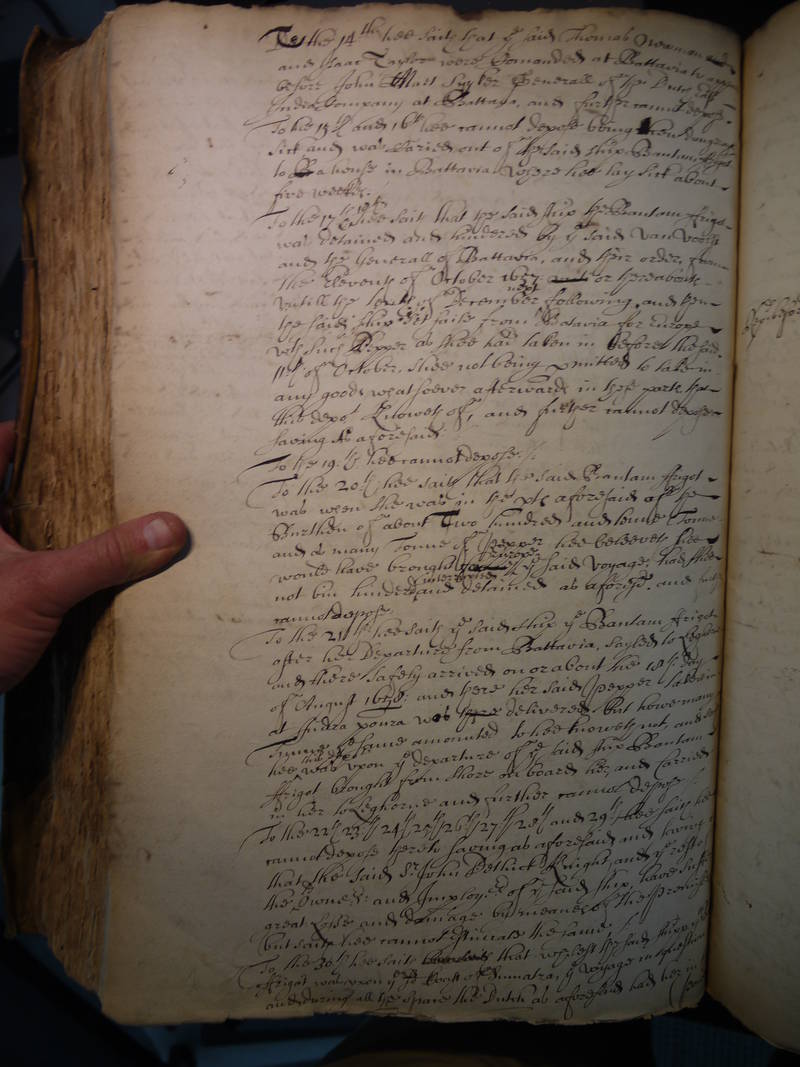 To the 14th hee saith that ye said Thomas Newman and
and Isaac Taylor were Comanded at Battavia to appeare
before John Maet Suyker Generall of the Dutch East
India Company at Battavia, and further cannot depose.
To the 15th and 16th hee cannot depose being then dangerously
sick and was Carried out of the said shipp Bantam ffrigot
to a house in Battavia where hee lay sick about
five weekes.
To the 17th 18th hee saith that the said shipp the Bantam ffrigot
was detained and hindered by ye said Van Voorst
and the Generall of Battavia, and their order, from
the Eleventh of October 1657 or thereabouts
untill the tenth of December next following, and then
the said shipp set saile from Battavia for Europe
with such Pepper as shee had taken in before the said
11th of October, shee not being permitted to take in
any goods whatsoever afterwards in those parts that
this depot knoweth of, and further cannot depose
saving as aforesaid
To the 19th hee cannot depose.
To the 20th hee saith that the said Bantam ffrigot
was when shee was in the parts aforesaid of the
Burthen of about Two hundred and some Tonne
and soe many Tonne of Pepper hee beleeveth hee
would have brought to Europe ye said voyage, had shee
not bin hindered interrupted and detained as aforesaid. and further
cannot depose.
To the 21th hee saith ye said shipp ye Bantam ffrigot
after her Departure from Battavia, sayled to Leghorne
and there safely arrived on or about the 18th day
of August 1658: and there her said Pepper taken in
at Indra poura was delivered But howe many
Tonne the same amounted to hee knoweth not, and saith
hee this depot was upon ye departure of ye said shipp Bantam
ffrigot brought from shore on board her, and Carried
in her to Leghorne and further cannot depose
To the 22th 23th 24th 25th 26th 27th 28th and 29th hee saith hee
cannot depose thereto saving as aforesaid and
that the said Sr John Pethick Knight and ye rest of
the Owners and Imployers of ye said ship, have suffered
great Losse and damage by meanes of the premisses
But saith hee cannot estimate the same
To the 30th hee saith that whilest the said shipp
ffrigot was upon ye Coast of Sumatra, ye voyage in question
and during all the space the Dutch as aforesaid had her in